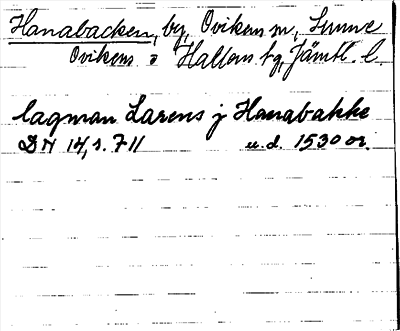 Hanabacken, by, Ovikens sn, Sunne
Ovikens o Hallens tg, Jämtl. l.
lagman Larens j Hanabakke
DN 14, s. 711 u.d. 1530 or.